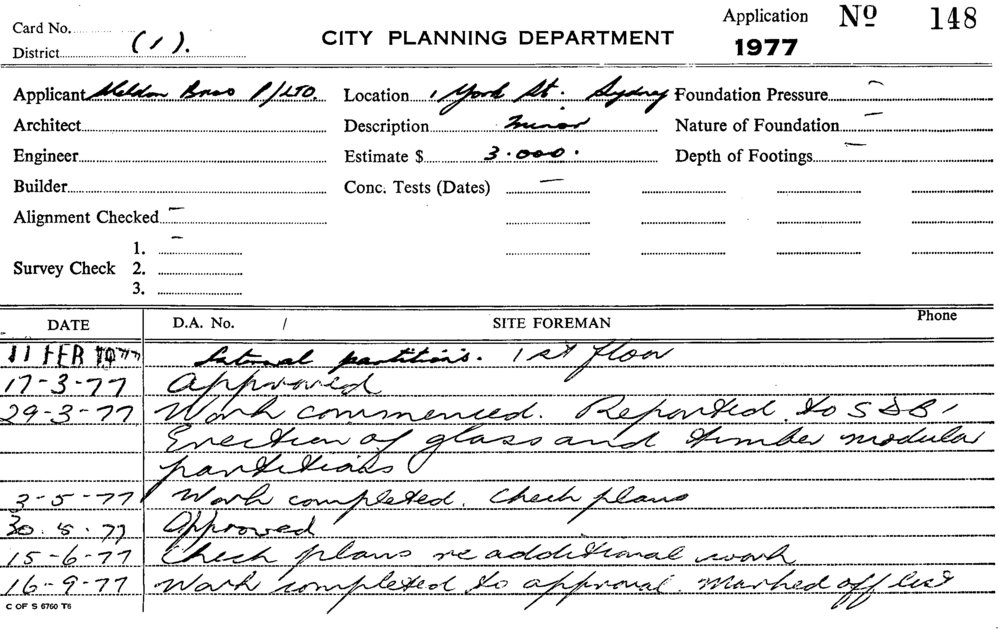 Card No.
District (1).
CITY PLANNING DEPARTMENT
Application No 148
1977
Applicant Bros P/LTD. Location 1 York St. Sydney Foundation Pressure –
Architect Description minor Nature of Foundation –
Engineer Estimate $ 3.000. Depth of Footings –
Builder Conc. Tests (Dates) –
Alignment Checked –
1. –
Survey Check 2.
3.
DATE D.A. No. / SITE FOREMAN Phone
11 FEB 1977 Internal partitions. 1st floor
17-3-77 Approved
29-3-77 Work commenced. Reported to S & B,
Erection of glass and timber modular
partitions
3-5-77 Work completed. Check plans
30.5.77 Approved
15-6-77 Check plans re additional work
16-9-77 Work completed to approval. Marked off list
C OF S 6760 T6